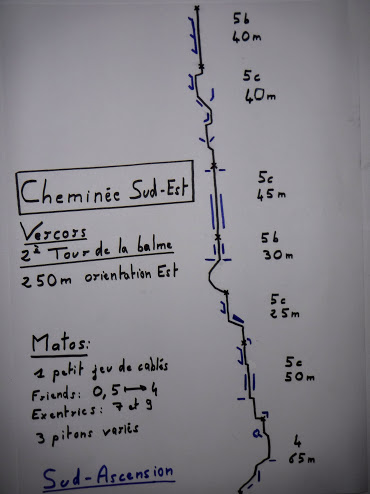 5b
40m
5c
40m
Cheminée Sud-Est
5c
45m
Vercors
2ᵉ Tour de la balme
5b
30m
250m orientation Est
5c
25m
Matos:
1 petit jeu de cablés
Friends: 0,5 → 4
Exentrics: 7 et 9
3 pitons variés
5c
50m
a
4
65m
Sud-Ascension